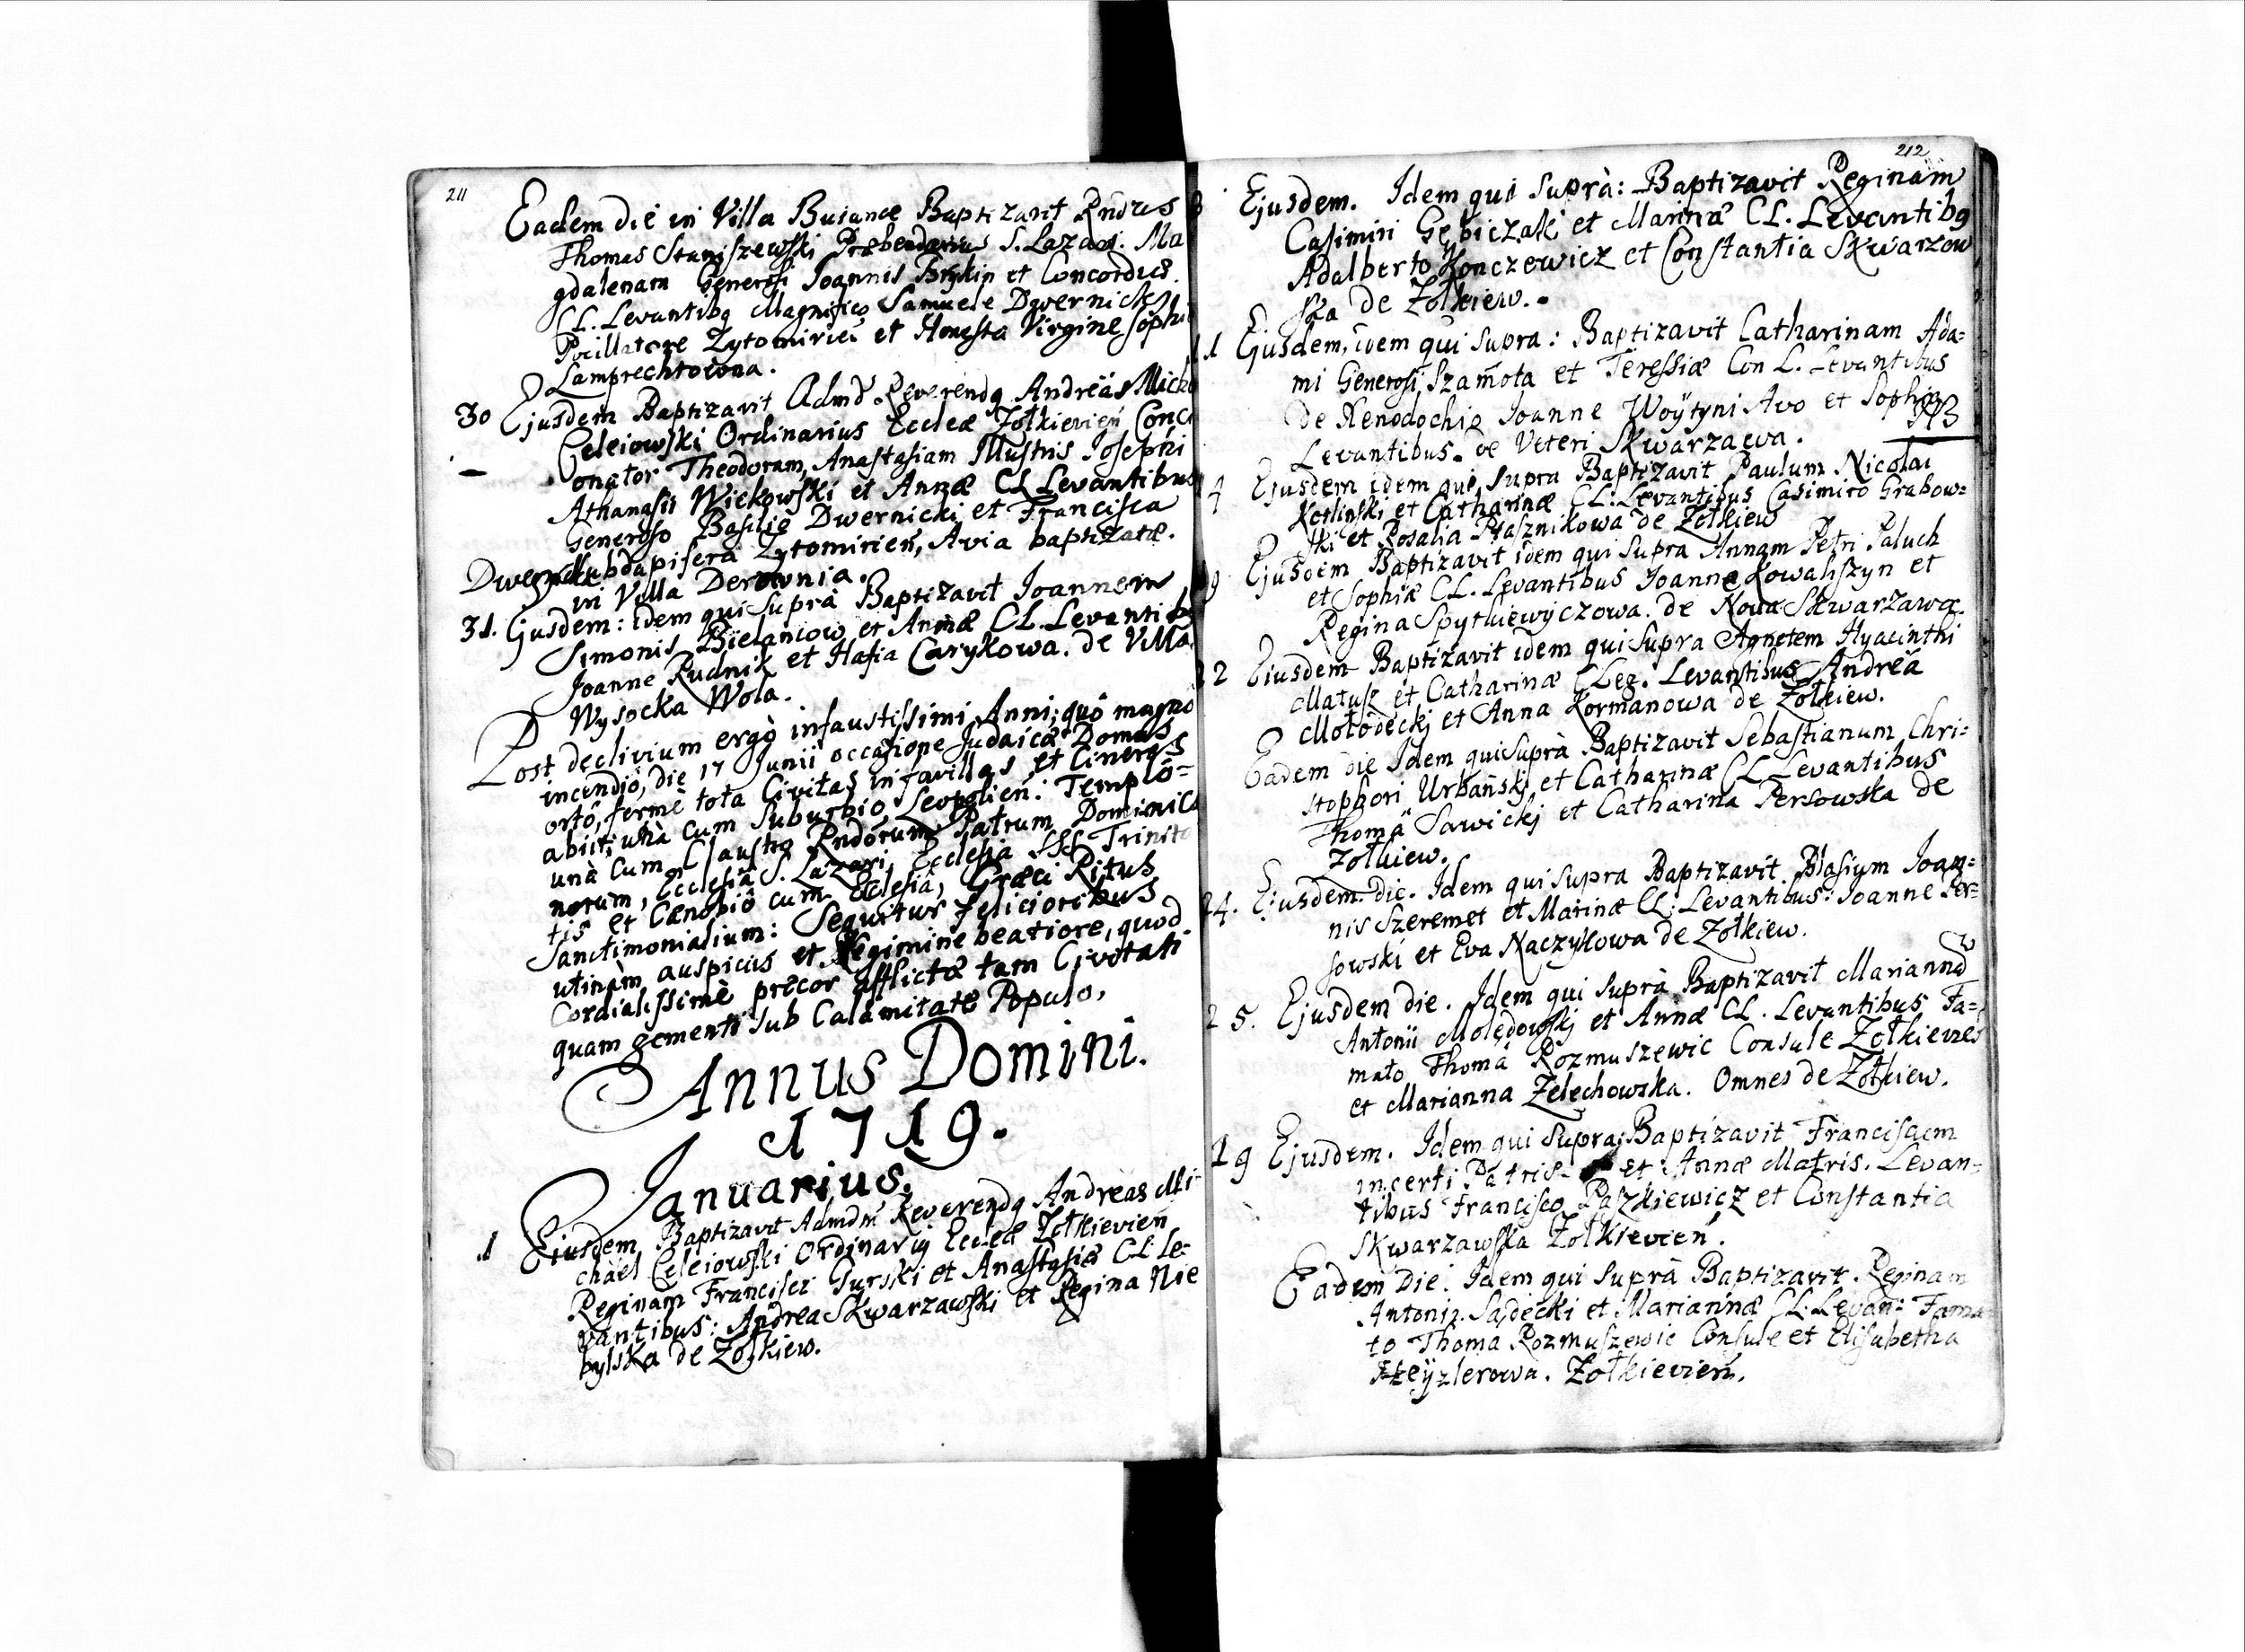 211
Eadem die in Villa Buiance Baptizavit Rndus
Thomas Staniszewski Præbendarius S. Lazari. Ma
gdalenam Generosi Joannis Brykin et Concordiæ
CL. Levantibq Magnifico Samuele Dwernicki
Pocillatore Zytomirien et Honesta Virgine Sophi
Lamprechtowna.
30 Ejusdem Baptizavit Admd Reverendq Andreas Mich
Celeiowski Ordinarius Eccleæ Żołkievien Conci
onator Theodoram, Anastasiam Illustris Josephi
Athanasii Wickowski et Annæ CL Levantibus
Generoso Basilio Dwernicki et Francisca
Dwernicki Subdapifera Zytomirien, Avia baptizatæ.
in Villa Derewnia.
31. Ejusdem: idem qui suprà Baptizavit Joannem
Simonis Bielaniow et Annæ CL. Levantibq
Joanne Rudnik et Hasia Carykowa. de Villa
Wysocka Wola.
Post declivium ergò infaustissimi Anni; quô magnô
incendiô, Die 17 Junii occasione Judaicæ Domus
ortô, fermè tota Civitas in favillas et Cineres
abiit; unà cum Suburbio Leopolien: Templô
unà cum Claustro Rndorum Patrum Dominica
norum, Ecclesiâ S. Lazari, Ecclesiâ SSS Trinita
tis et Cænobiô cum Ecclesiâ, Græci Ritus
Sanctimonialium: Sequitur felicioribus
utinàm auspiciis et Regimine beatiore, quod
Cordialissimè precor afflictæ tam Civitati
quam gementi sub Calamitate Populo.
Annus Domini.
1719.
Januarius.
1 Ejusdem Baptizavit Admdm Reverendq Andreas Mi-
chael Celeiowski Ordinariq Eccleæ Żołkievien
Reginam Francisci Gurski et Anastasiæ CL: Le-
vantibus: Andrea Skwarzawski et Regina Nie
bylska de Żołkiew.
212
8 Ejusdem. Idem qui suprà: Baptizavit Reginam
Casimiri Gębiczak et Marinæ CL. Levantibq
Adalberto Konczewicz et Constantia Skwarzow
ska de Żołkiew.
11 Ejusdem, idem qui supra: Baptizavit Catharinam Ada=
mi Generosi Szamota et Teressiæ Con L. Levantibus
de Xenodochio Joanne Woÿtyni Avo et Sophia
Levantibus. de Veteri Skwarzawa. NB
Ejusdem idem qui supra Baptizavit Paulum Nicolai
Kotlinski et Catharinæ CL: Levantibus Casimiro Grabow=
ski et Rosalia Ptasznikowa de Żołkiew
19 Ejusdem Baptizavit idem qui supra Annam Petri Paluch
et Sophiæ CL. Levantibus Joanne Kowaliszyn et
Regina Spytkiewyczowa. de Nova Skwarzawa.
22 Eiusdem Baptizavit idem qui supra Agnetem Hyacinthi
Matusz et Catharinæ CLeg. Levantibus Andreâ
Mołodeckj et Anna Kormanowa de Żołkiew.
Eadem die Idem qui suprà Baptizavit Sebastianum Chri=
stophori Urbańskj et Catharinæ CL Levantibus
Thomâ Sawickj et Catharina Persowska de
Żołkiew.
24. Eiusdem die. Idem qui supra Baptizavit Blasium Joan=
nis Szeremet et Marinæ CL: Levantibus: Joanne Per=
sowski et Eva Naczyłowa de Żołkiew.
25. Ejusdem die. Idem qui suprà Baptizavit Marianna
Antonii Molędowskj et Annæ CL. Levantibus Fa=
mato Thomâ Rozmuszewic Consule Żołkievies
et Marianna Zelechowska. Omnes de Żołkiew.
19 Ejusdem. Idem qui supra: Baptizavit Franciscum
incerti Patris- et Annæ Matris. Levan=
tibus Francisco Paszkiewicz et Constantia
Skwarzawska Żołkievien.
Eadem Die. Idem qui suprà Baptizavit. Reginam
Antonii Sądecki et Mariannæ CL: Levan: Fama
to Thoma Rozmuszewic Consule et Elisabetha
Heÿzlerowa. Żołkievien.